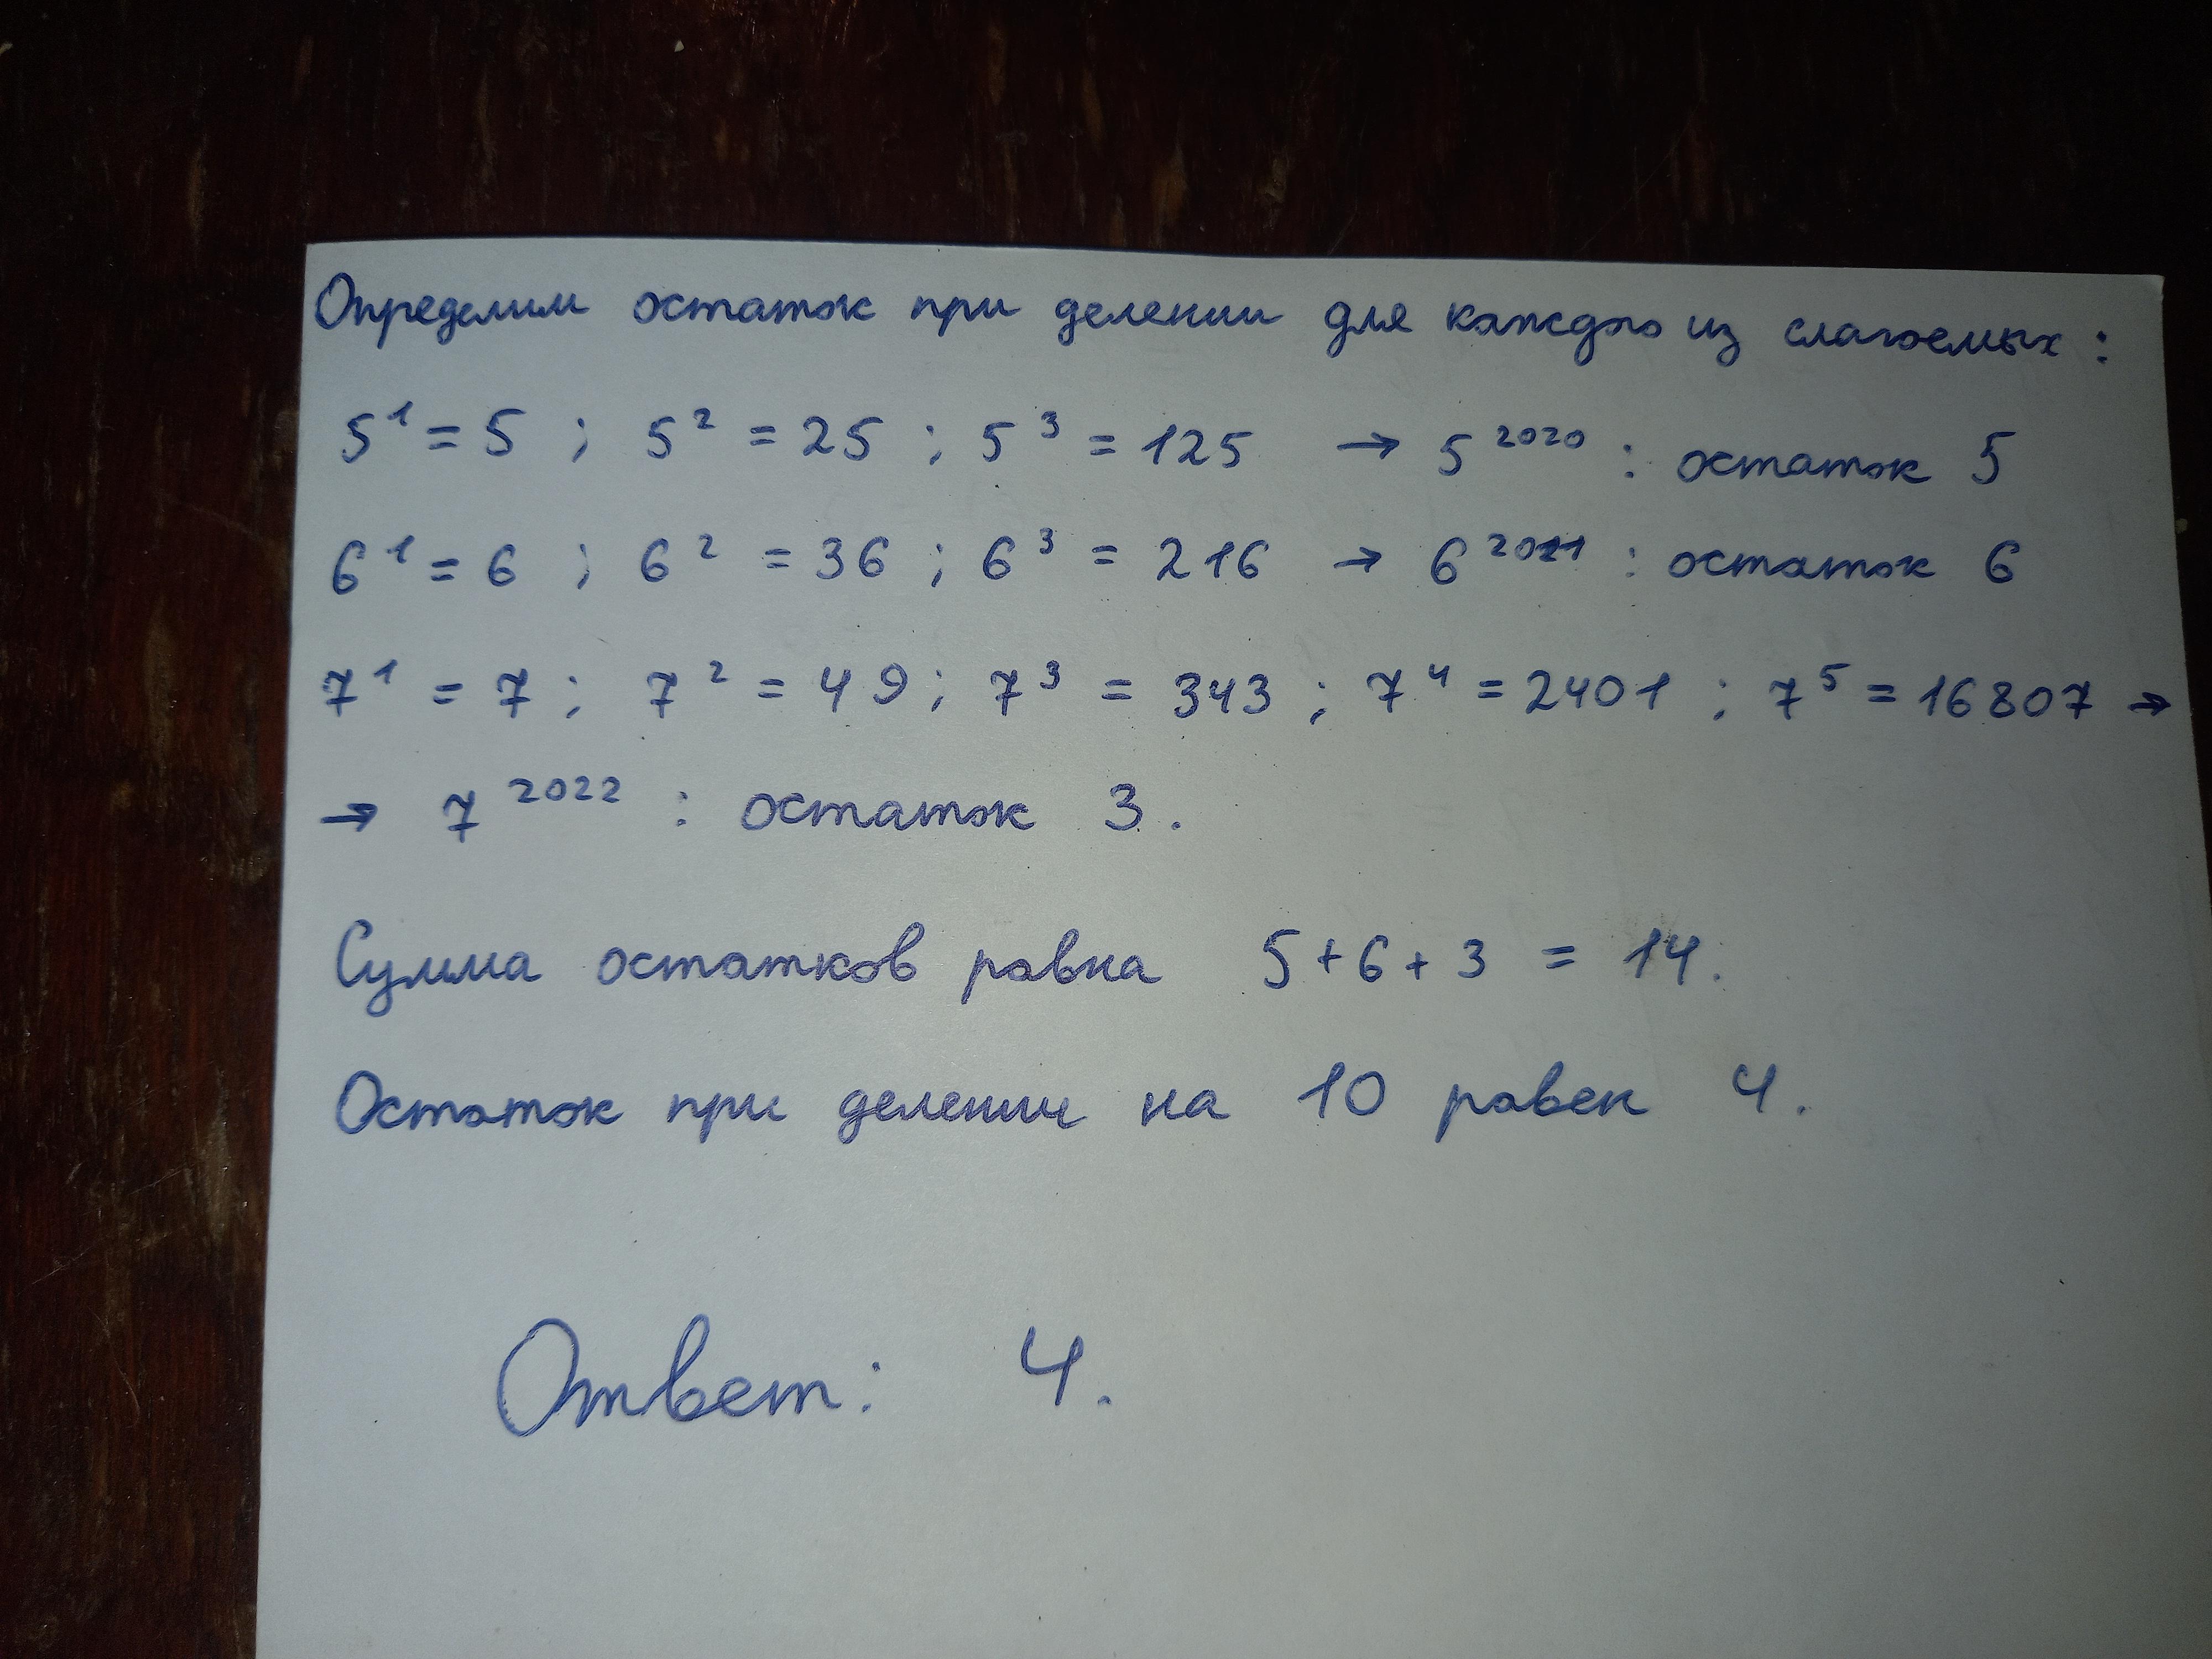 Определим остаток при делении для каждого из слагаемых:
5¹ = 5 ; 5² = 25 ; 5³ = 125 → 5²⁰²⁰ : остаток 5
6¹ = 6 ; 6² = 36 ; 6³ = 216 → 6²⁰²¹ : остаток 6
7¹ = 7 ; 7² = 49 ; 7³ = 343 ; 7⁴ = 2401 ; 7⁵ = 16807 →
→ 7²⁰²² : остаток 3.
Сумма остатков равна 5 + 6 + 3 = 14.
Остаток при делении на 10 равен 4.
Ответ: 4.